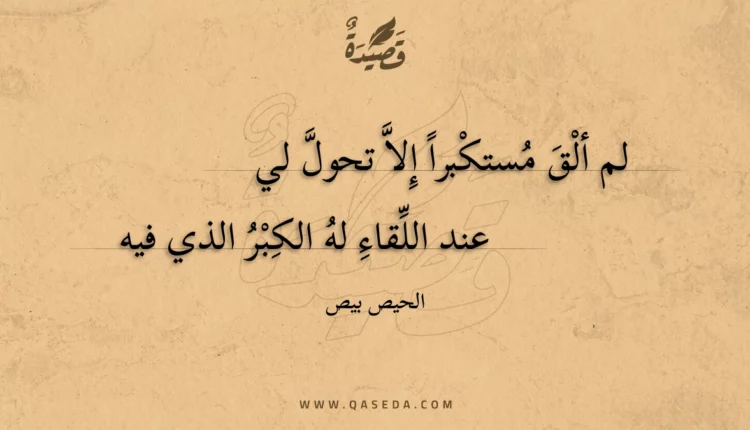 قَصِيْدَةٌ
لم ألْقَ مُستكْبراً إِلاَّ تحولَّ لي
عند اللِّقاءِ لهُ الكِبْرُ الذي فيه
الحيص بيص
WWW.QASEDA.COM